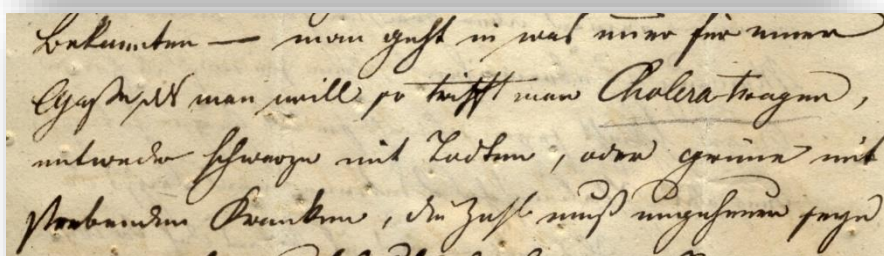 Bekannten — man geht in was immer für einer
Gasse man will so trifft man Choleratragen,
entweder schwarze mit Todten, oder grüne mit
sterbenden Kranken, die Zahl muß ungeheuer seyn